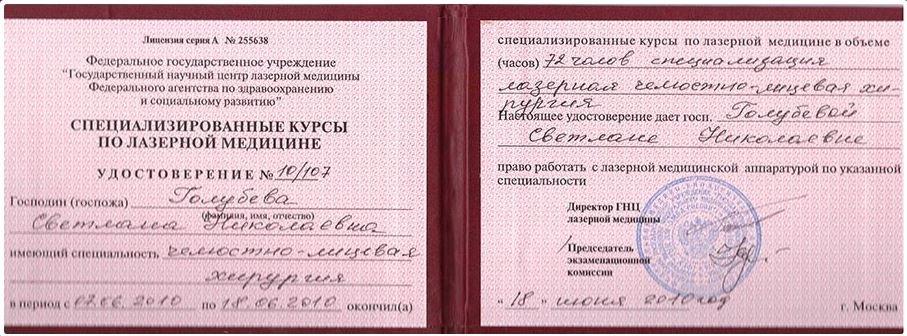 Лицензия серия А № 255638
Федеральное государственное учреждение
“Государственный научный центр лазерной медицины
Федерального агентства по здравоохранению
и социальному развитию”
СПЕЦИАЛИЗИРОВАННЫЕ КУРСЫ
ПО ЛАЗЕРНОЙ МЕДИЦИНЕ
УДОСТОВЕРЕНИЕ № 10/107
Господин (госпожа) Голубева
(фамилия, имя, отчество)
Светлана Николаевна
имеющий специальность челюстно-лицевая
хирургия
в период с 07.06.2010 по 18.06.2010 окончил(а)
специализированные курсы по лазерной медицине в объеме
(часов) 72 часов специализация
лазерная челюстно-лицевая хи-
рургия
Настоящее удостоверение дает госп. Голубевой
Светлане Николаевне
право работать с лазерной медицинской аппаратурой по указанной
специальности
Директор ГНЦ
лазерной медицины
Председатель
экзаменационной
комиссии
“ 18 ” июня 2010 год
г. Москва